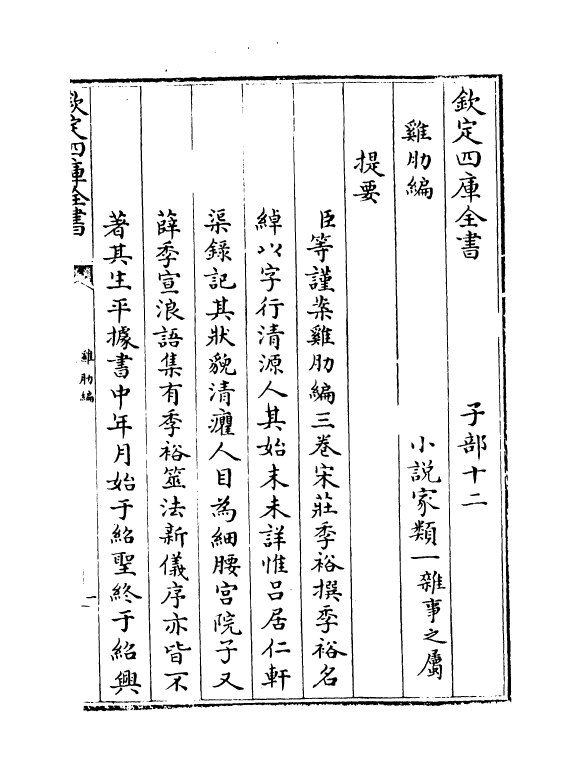 欽定四庫全書　　　　子部十二
雞肋編　　　　　　　小說家類一雜事之屬
提要
臣等謹案雞肋編三卷宋莊季裕撰季裕名
綽以字行清源人其始末未詳惟呂居仁軒
渠錄記其狀貌清癯人目為細腰宮院子又
薛季宣浪語集有季裕筮法新儀序亦皆不
著其生平據書中年月始于紹聖終于紹興
欽定四庫全書
雞肋編
一